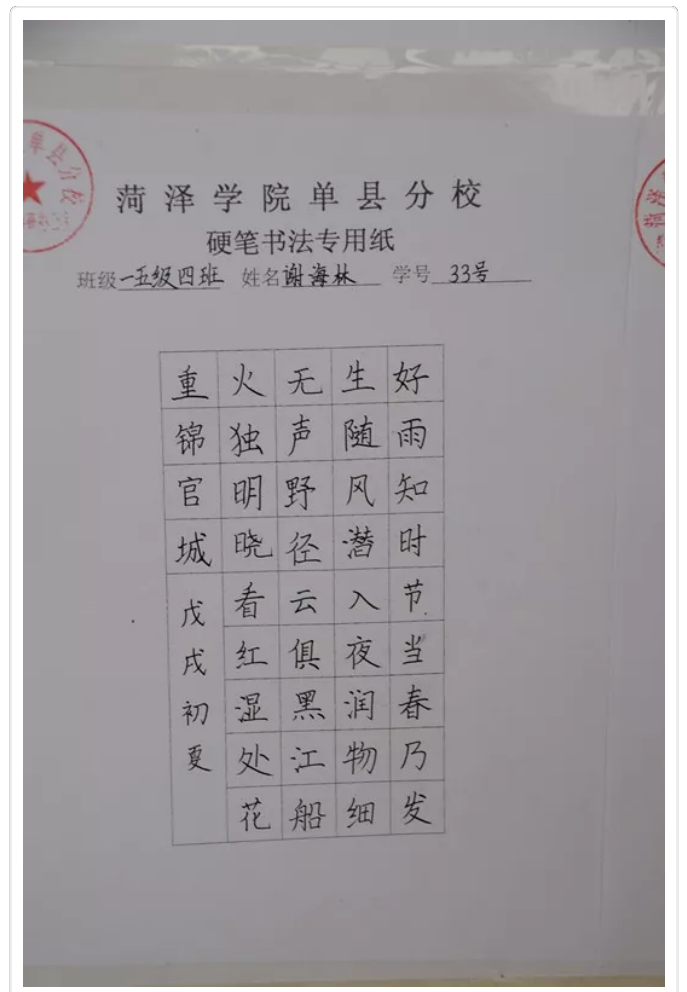 单县分校
菏泽
菏泽学院单县分校
硬笔书法专用纸
班级一五级四班 姓名谢海林 学号33号
好雨知时节当春乃发
生随风潜入夜润物细
无声野径云俱黑江船
火独明晓看红湿处花
重锦官城
戊戌初夏